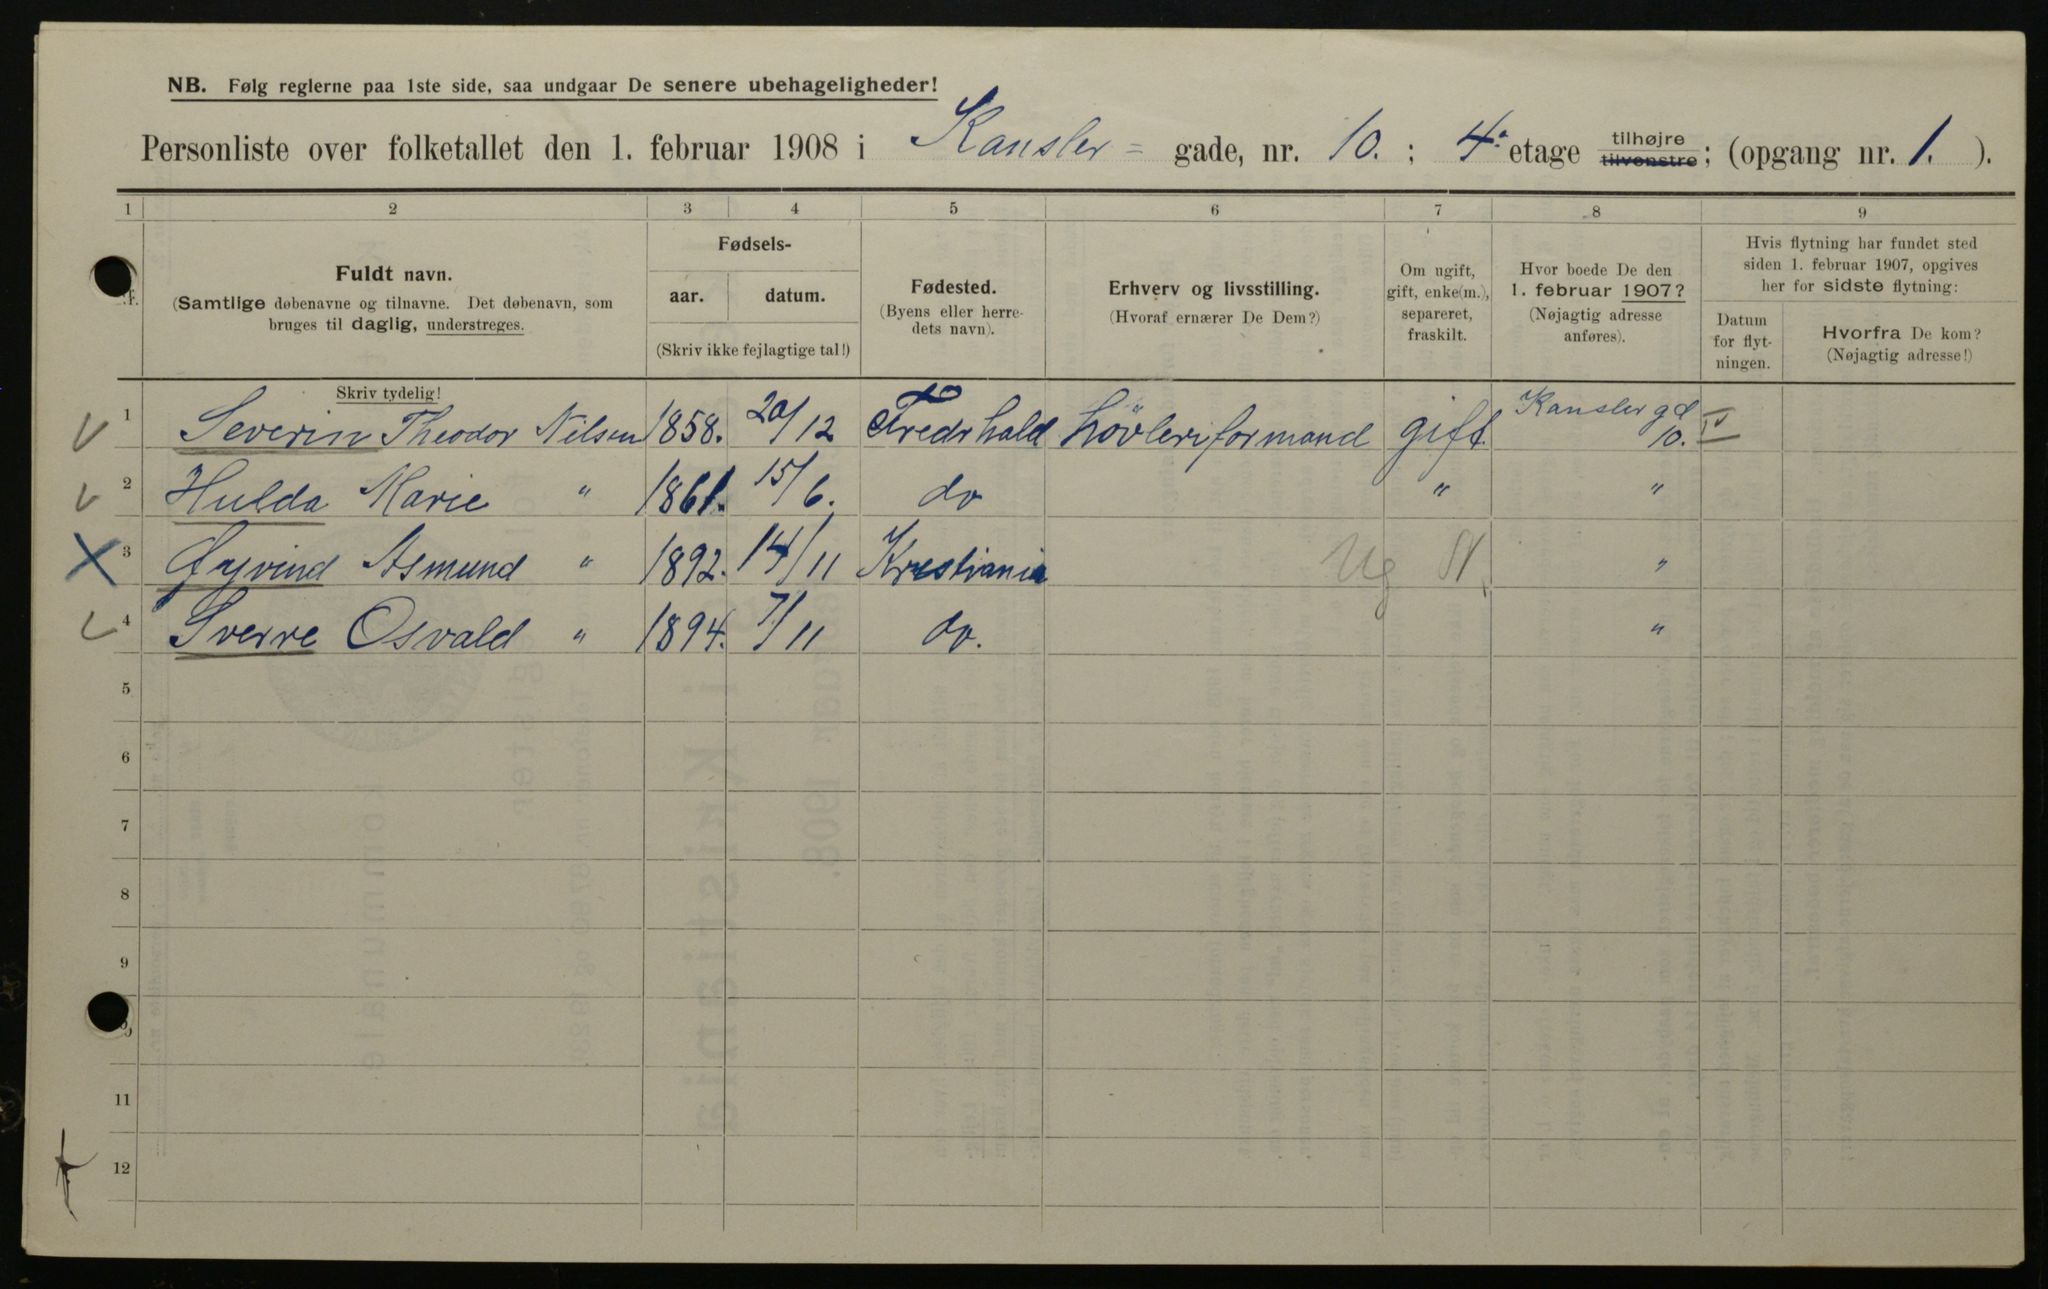 NB. Følg reglerne paa 1ste side, saa undgaar De senere ubehageligheder!
Personliste over folketallet den 1. februar 1908 i Kansler = gade, nr. 10. ; 4. etage tilhøjre tilvenstre; (opgang nr. 1. ).
1 2 3 4 5 6 7 8 9
Fuldt navn.
(Samtlige døbenavne og tilnavne. Det døbenavn, som
bruges til daglig, understreges.
Fødsels-
aar. datum.
(Skriv ikke fejlagtige tal!)
Fødested.
(Byens eller herre-
dets navn).
Erhverv og livsstilling.
(Hvoraf ernærer De Dem?)
Om ugift,
gift, enke(m.),
separeret,
fraskilt.
Hvor boede De den
1. februar 1907?
(Nøjagtig adresse
anføres).
Hvis flytning har fundet sted
siden 1. februar 1907, opgives
her for sidste flytning:
Datum
for flyt-
ningen.
Hvorfra De kom?
(Nøjagtig adresse!)
Skriv tydelig!
1 Severin Theodor Nilsen 1858. 20/12 Fredrhald Høvleriformand gift Kansler gd 10. IV
2 Hulda Marie " 1861. 15/6. do " "
3 Øyvind Asmund " 1892. 14/11 Krestiania Ug "
4 Sverre Osvald " 1894. 7/11 do. "
5
6
7
8
9
11
12